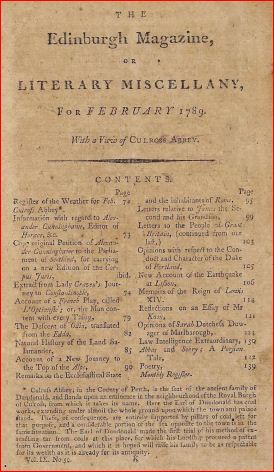 THE
Edinburgh Magazine,
OR
LITERARY MISCELLANY,
FOR FEBRUARY 1789.
With a View of CULROSS ABBEY.
CONTENTS.
Page
Register of the Weather for Feb. 70
Culross Abbey*.
Information with regard to Alex-
ander Cunninghame, Editor of
Horace, &c. 73
original Petition of Alexan-
der Cunninghame to the Parlia-
ment of Scotland, for carrying
on a new Edition of the Cor-
pus Juris, ibid.
Extract from Lady Craven's Jour-
ney to Constantinople, 74
Account of a French Play, called
L'Optimiste; or, the Man con-
tent with every Thing, 79
The Descent of Odin, translated
from the Edda, 82
Natural History of the Land Sa-
lamander, 83
Account of a New Journey to the
Top of the Alps, 90
Remarks on the Ecclesiastical State
Page
and the Inhabitants of Rome, 95
Letters relative to James the Se-
cond and his Grandson, 99
Letters to the People of Great
Britain, (continued from our
last,) 103
Opinions with respect to the Con-
duct and Character of the Duke
of Portland, 105
New Account of the Earthquake
at Lisbon, 106
Memoirs of the Reign of Louis
XIV. 114
Strictures on an Essay of Mr
121
Opinions of Sarah Duchess Dow-
ager of Marlborough, 121
Law Intelligence Extraordinary, 132
Abbas and Sohry; A Persian
Tale, 132
Poetry, 139
Monthly Register.
* Culross Abbey, in the County of Perth, is the seat of the ancient family of
Dundonald, and stands upon an eminence in the neighbourhood of the Royal Burgh
of Culross from which it takes its name. Here the Earl of Dundonald has coal
works, extending under almost the whole ground upon which the town and palace
stand. These, of consequence, are entirely supported by pillars of coal left for
that purpose, and a considerable portion of the sea opposite to the town is in the
same situation. The Earl of Dundonald made the first trial of his method of ex-
tracting tar from coals at this place, for which his Lordship procured a patent
from Government, and which it is hoped will raise his family to be as respectable
for its wealth as it is already for its antiquity.
Vol. IX. No. 50. K